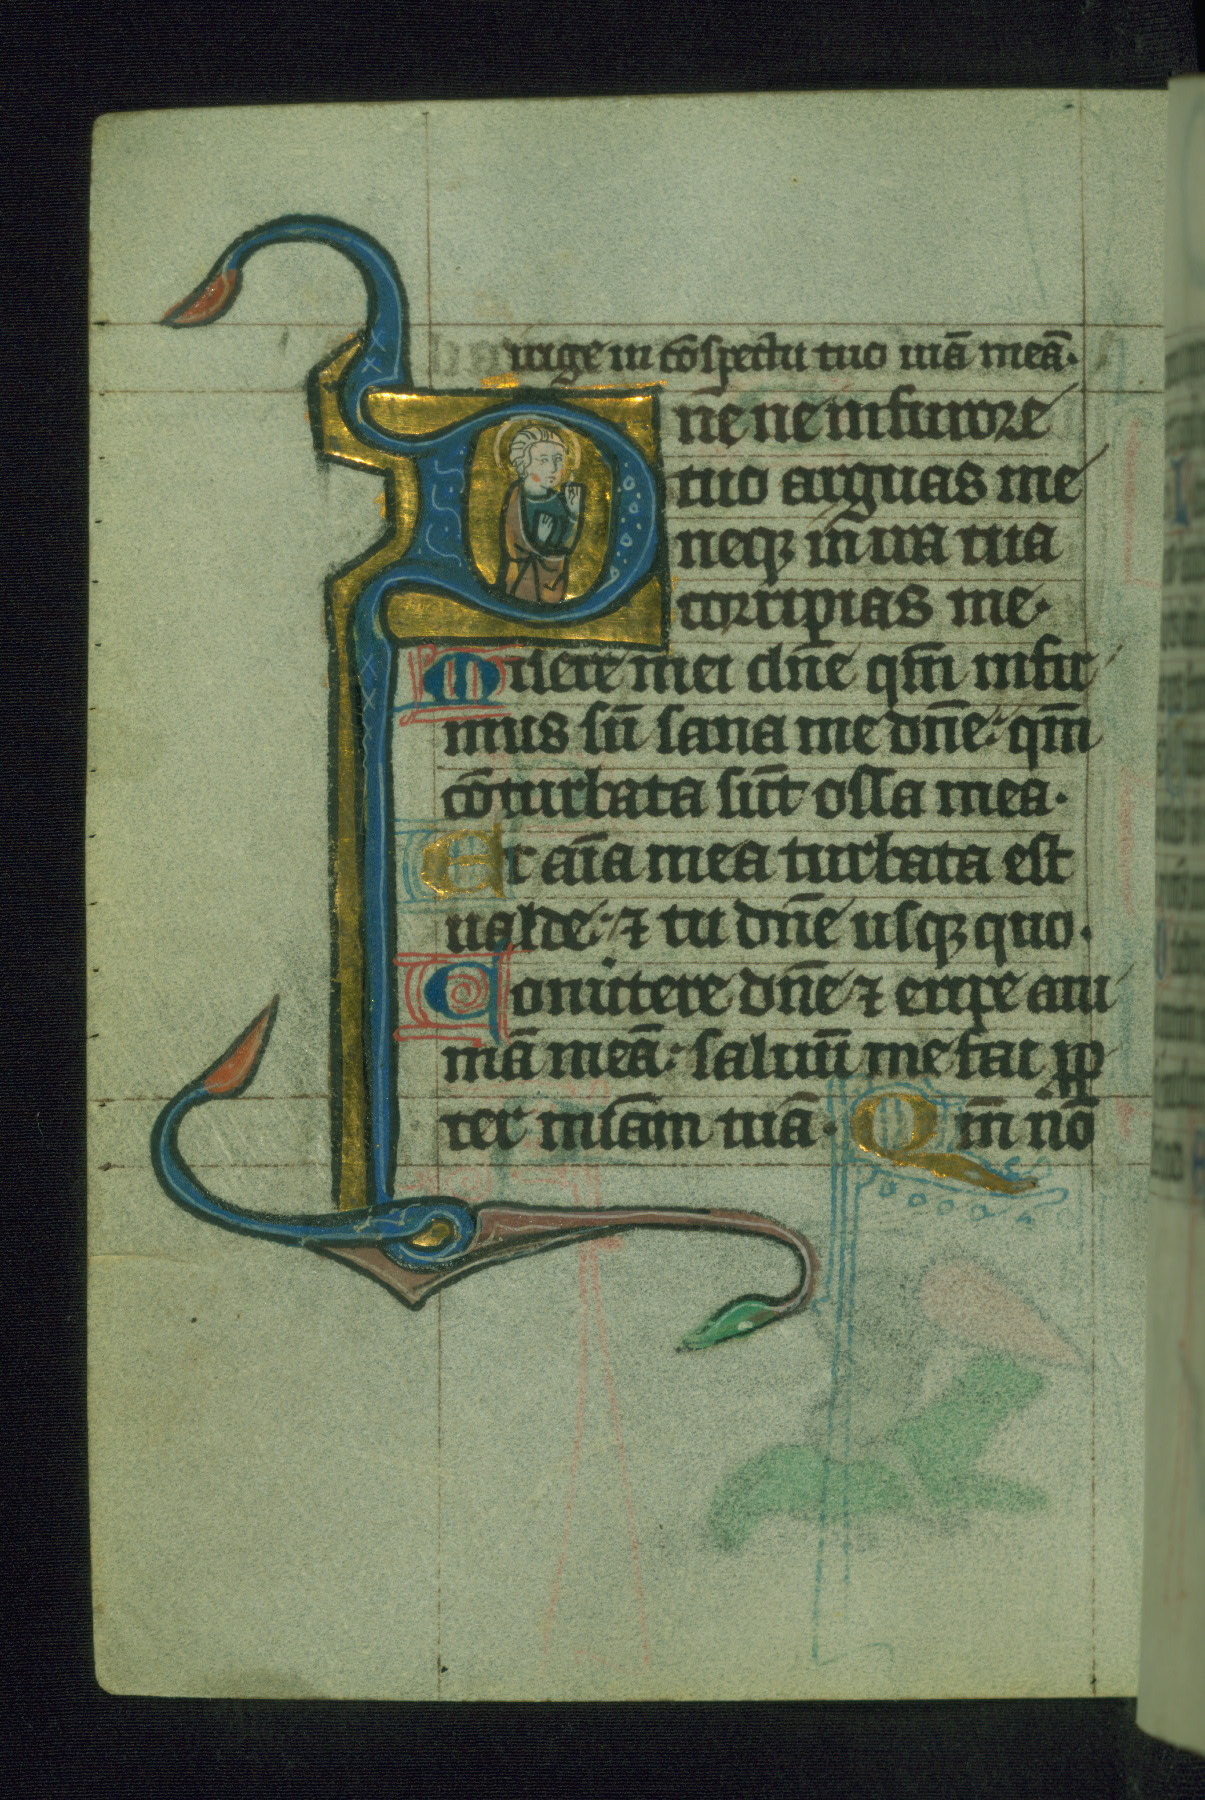 urige in cōspectu tuo uiā meā.
Dn̄e ne in furore
tuo arguas me
neqꝫ in ira tua
corripias me.
Miserere mei dn̄e qm̄ infir
mus sū sana me dn̄e: qm̄
cōturbata sūt ossa mea.
Et aīa mea turbata est
ualde: ⁊ tu dn̄e usqꝫ quo.
Conuertere dn̄e ⁊ eripe ani
mā meā: saluū me fac ꝓp
ter mīam tuā. Qm̄ nō